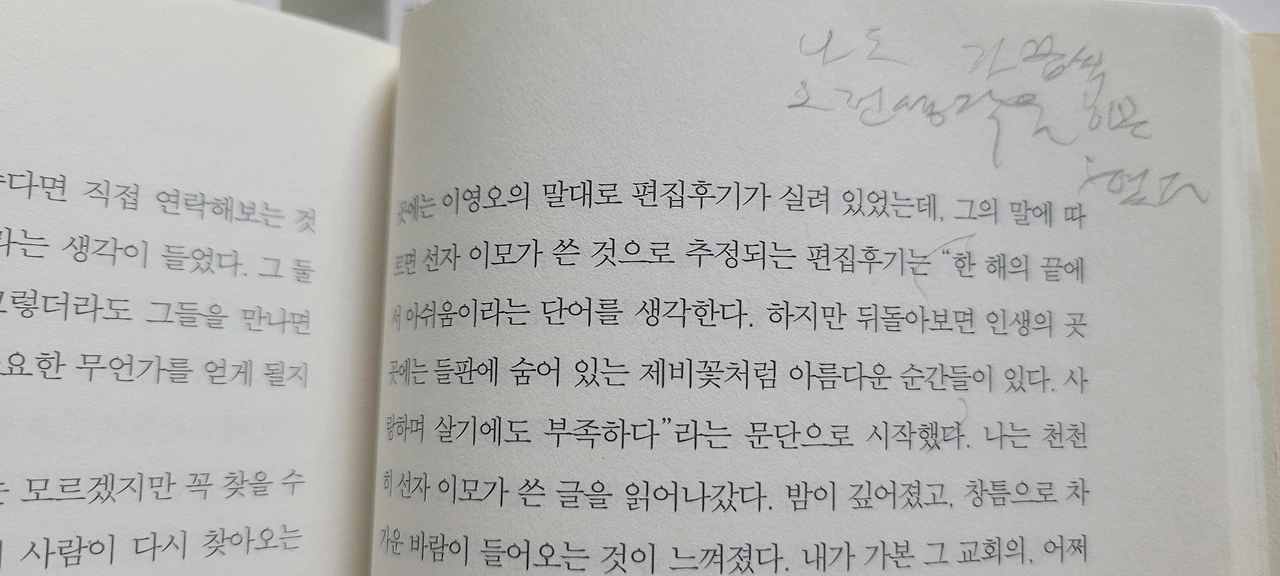 다면 직접 연락해보는 것
라는 생각이 들었다. 그 둘
그렇더라도 그들을 만나면
요한 무언가를 얻게 될지
는 모르겠지만 꼭 찾을 수
사람이 다시 찾아오는
나도 가끔씩
이런생각을 하곤
했다
곳에는 이영오의 말대로 편집후기가 실려 있었는데, 그의 말에 따
르면 선자 이모가 쓴 것으로 추정되는 편집후기는 “한 해의 끝에
서 아쉬움이라는 단어를 생각한다. 하지만 뒤돌아보면 인생의 곳
곳에는 들판에 숨어 있는 제비꽃처럼 아름다운 순간들이 있다. 사
랑하며 살기에도 부족하다”라는 문단으로 시작했다. 나는 천천
히 선자 이모가 쓴 글을 읽어나갔다. 밤이 깊어졌고, 창틈으로 차
가운 바람이 들어오는 것이 느껴졌다. 내가 가본 그 교회의, 어쩌